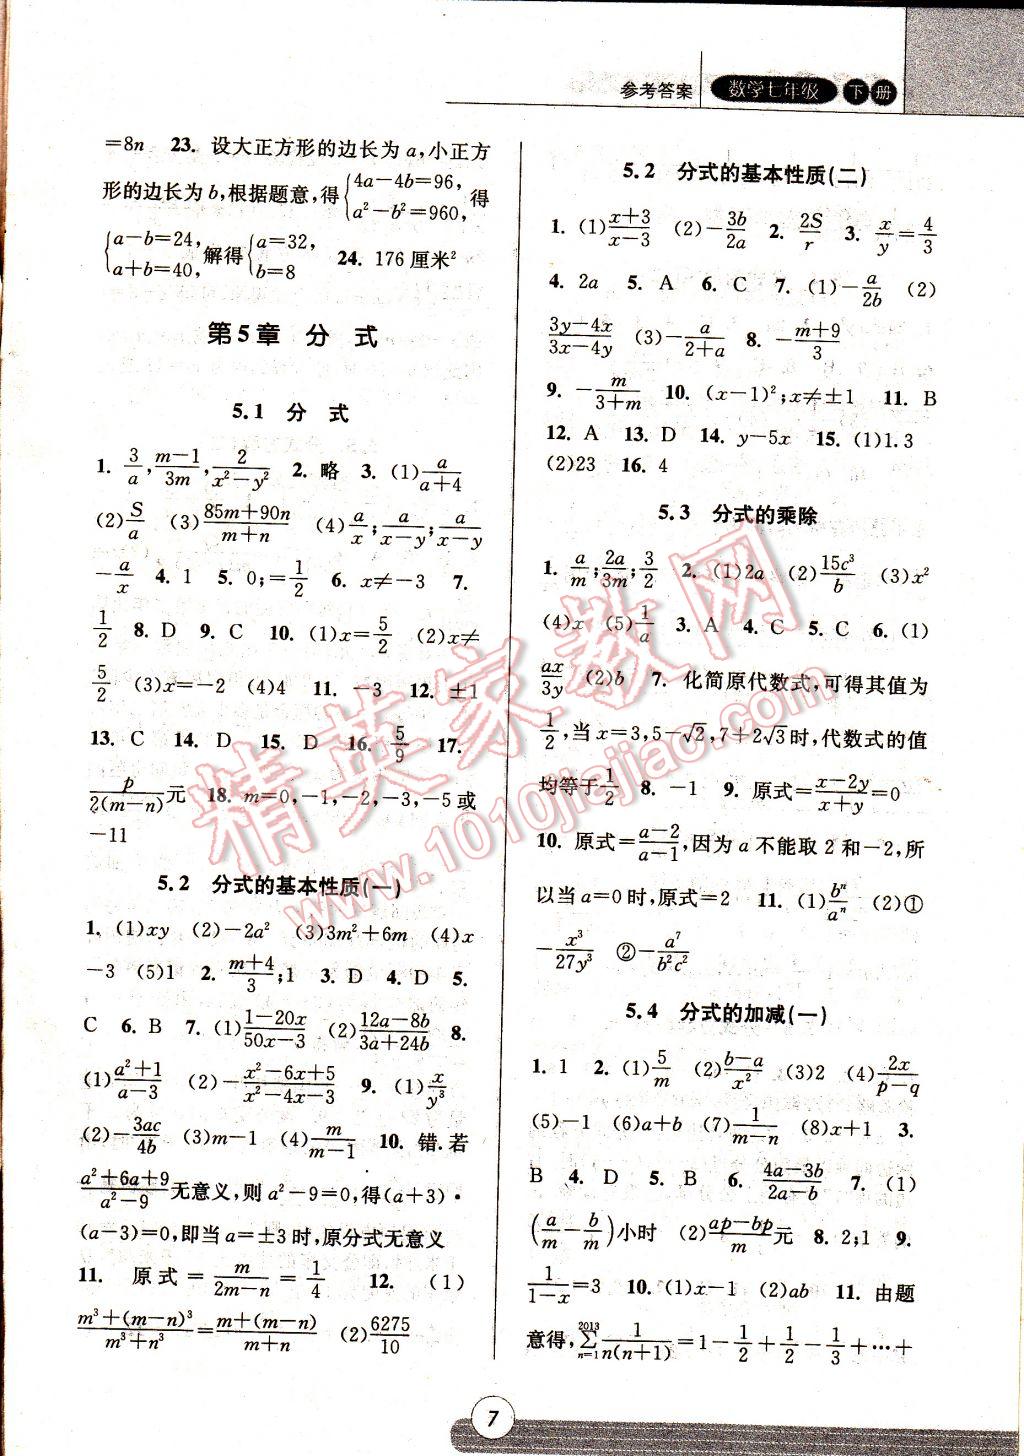 参考答案 数学七年级 下册
=8n 23. 设大正方形的边长为 a,小正方
形的边长为 b,根据题意,得{4a-4b=96, a²-b²=960,得
{a-b=24, a+b=40,解得{a=32, b=8 24. 176 厘米²
第 5 章 分 式
5.1 分 式
1. 3/a, (m-1)/3m, 2/(x²-y²) 2. 略 3. (1) a/(a+4)
(2) S/a (3) (85m+90n)/(m+n) (4) a/x; a/(x-y); a/(x-y)
- a/x 4. 1 5. 0;=1/2 6. x≠-3 7.
1/2 8. D 9. C 10. (1)x=5/2 (2)x≠
5/2 (3)x=-2 (4)4 11. -3 12. ±1
13. C 14. D 15. D 16. 5/9 17.
p/2(m-n)元 18. m=0,-1,-2,-3,-5或
-11
5.2 分式的基本性质(一)
1. (1)xy (2)-2a² (3)3m²+6m (4)x
-3 (5)1 2. (m+4)/3;1 3. D 4. D 5.
C 6. B 7. (1) (1-20x)/(50x-3) (2) (12a-8b)/(3a+24b) 8.
(1) (a²+1)/(a-3) (2)- (x²-6x+5)/(x²-4x-3) 9. (1) x/y³
(2)- 3ac/4b (3)m-1 (4) m/(m-1) 10. 错.若
(a²+6a+9)/(a²-9)无意义,则 a²-9=0,得(a+3)·
(a-3)=0,即当 a=±3 时,原分式无意义
11. 原式= m/(2m-n) = 1/4 12. (1)
(m³+(m-n)³)/(m³+n³) = (m+(m-n))/(m+n) (2) 6275/10
5.2 分式的基本性质(二)
1. (1) (x+3)/(x-3) (2)- 3b/2a 2. 2S/r 3. x/y = 4/3
4. 2a 5. A 6. C 7. (1)- a/2b (2)
(3y-4x)/(3x-4y) (3)- a/(2+a) 8. - (m+9)/3
9. - m/(3+m) 10. (x-1)²;x≠±1 11. B
12. A 13. D 14. y-5x 15. (1)1.3
(2)23 16. 4
5.3 分式的乘除
1. a/m; 2a/3m; 3/2 2. (1)2a (2) 15c³/b (3)x²
(4)x (5) 1/a 3. A 4. C 5. C 6. (1)
ax/3y (2)b 7. 化简原代数式,可得其值为
1/2,当 x=3,5-√2,7+2√3时,代数式的值
均等于 1/2 8. -1 9. 原式= (x-2y)/(x+y) =0
10. 原式= (a-2)/(a-1),因为 a 不能取 2 和-2,所
以当 a=0 时,原式=2 11. (1) bⁿ/aⁿ (2)①
- x³/27y³ ②- a⁷/b²c²
5.4 分式的加减(一)
1. 1 2. (1) 5/m (2) (b-a)/x² (3)2 (4) 2x/(p-q)
(5)-1 (6)a+b (7) 1/(m-n) (8)x+1 3.
B 4. D 5. B 6. (4a-3b)/(2a-b) 7. (1)
(a/m - b/m)小时 (2) (ap-bp)/m 元 8. 2;1 9.
1/(1-x) =3 10. (1)x-1 (2)ab 11. 由题
意得, 2013 ∑ n=1 1/n(n+1) =1- 1/2 + 1/2 - 1/3 +…+
7
精英家教网
www.1010jiajiao.com